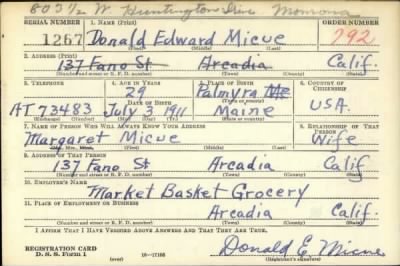 803 1/2 W. Huntington Dive Monrovia
SERIAL NUMBER 1. NAME (Print) ORDER NUMBER
1267 Donald Edward Micue 292
(First) (Middle) (Last)
2. ADDRESS (Print)
137 Fano St Arcadia Calif.
(Number and street or R. F. D. number) (Town) (County) (State)
3. TELEPHONE 4. AGE IN YEARS 5. PLACE OF BIRTH 6. COUNTRY OF CITIZENSHIP
29 Palmyra Me
DATE OF BIRTH (Town or county)
AT 73483 July 3, 1911 Maine USA.
(Exchange) (Number) (Mo.) (Day) (Yr.) (State or country)
7. NAME OF PERSON WHO WILL ALWAYS KNOW YOUR ADDRESS 8. RELATIONSHIP OF THAT PERSON
Margaret Micue Wife
(Mr., Mrs., Miss) (First) (Middle) (Last)
9. ADDRESS OF THAT PERSON
137 Fano St Arcadia Calif
(Number and street or R. F. D. number) (Town) (County) (State)
10. EMPLOYER'S NAME
Market Basket Grocery
11. PLACE OF EMPLOYMENT OR BUSINESS
Arcadia Calif.
(Number and street or R. F. D. number) (Town) (County) (State)
I AFFIRM THAT I HAVE VERIFIED ABOVE ANSWERS AND THAT THEY ARE TRUE.
REGISTRATION CARD
D. S. S. Form 1 (over) 16—17105 Donald E Micue
(Registrant's signature)